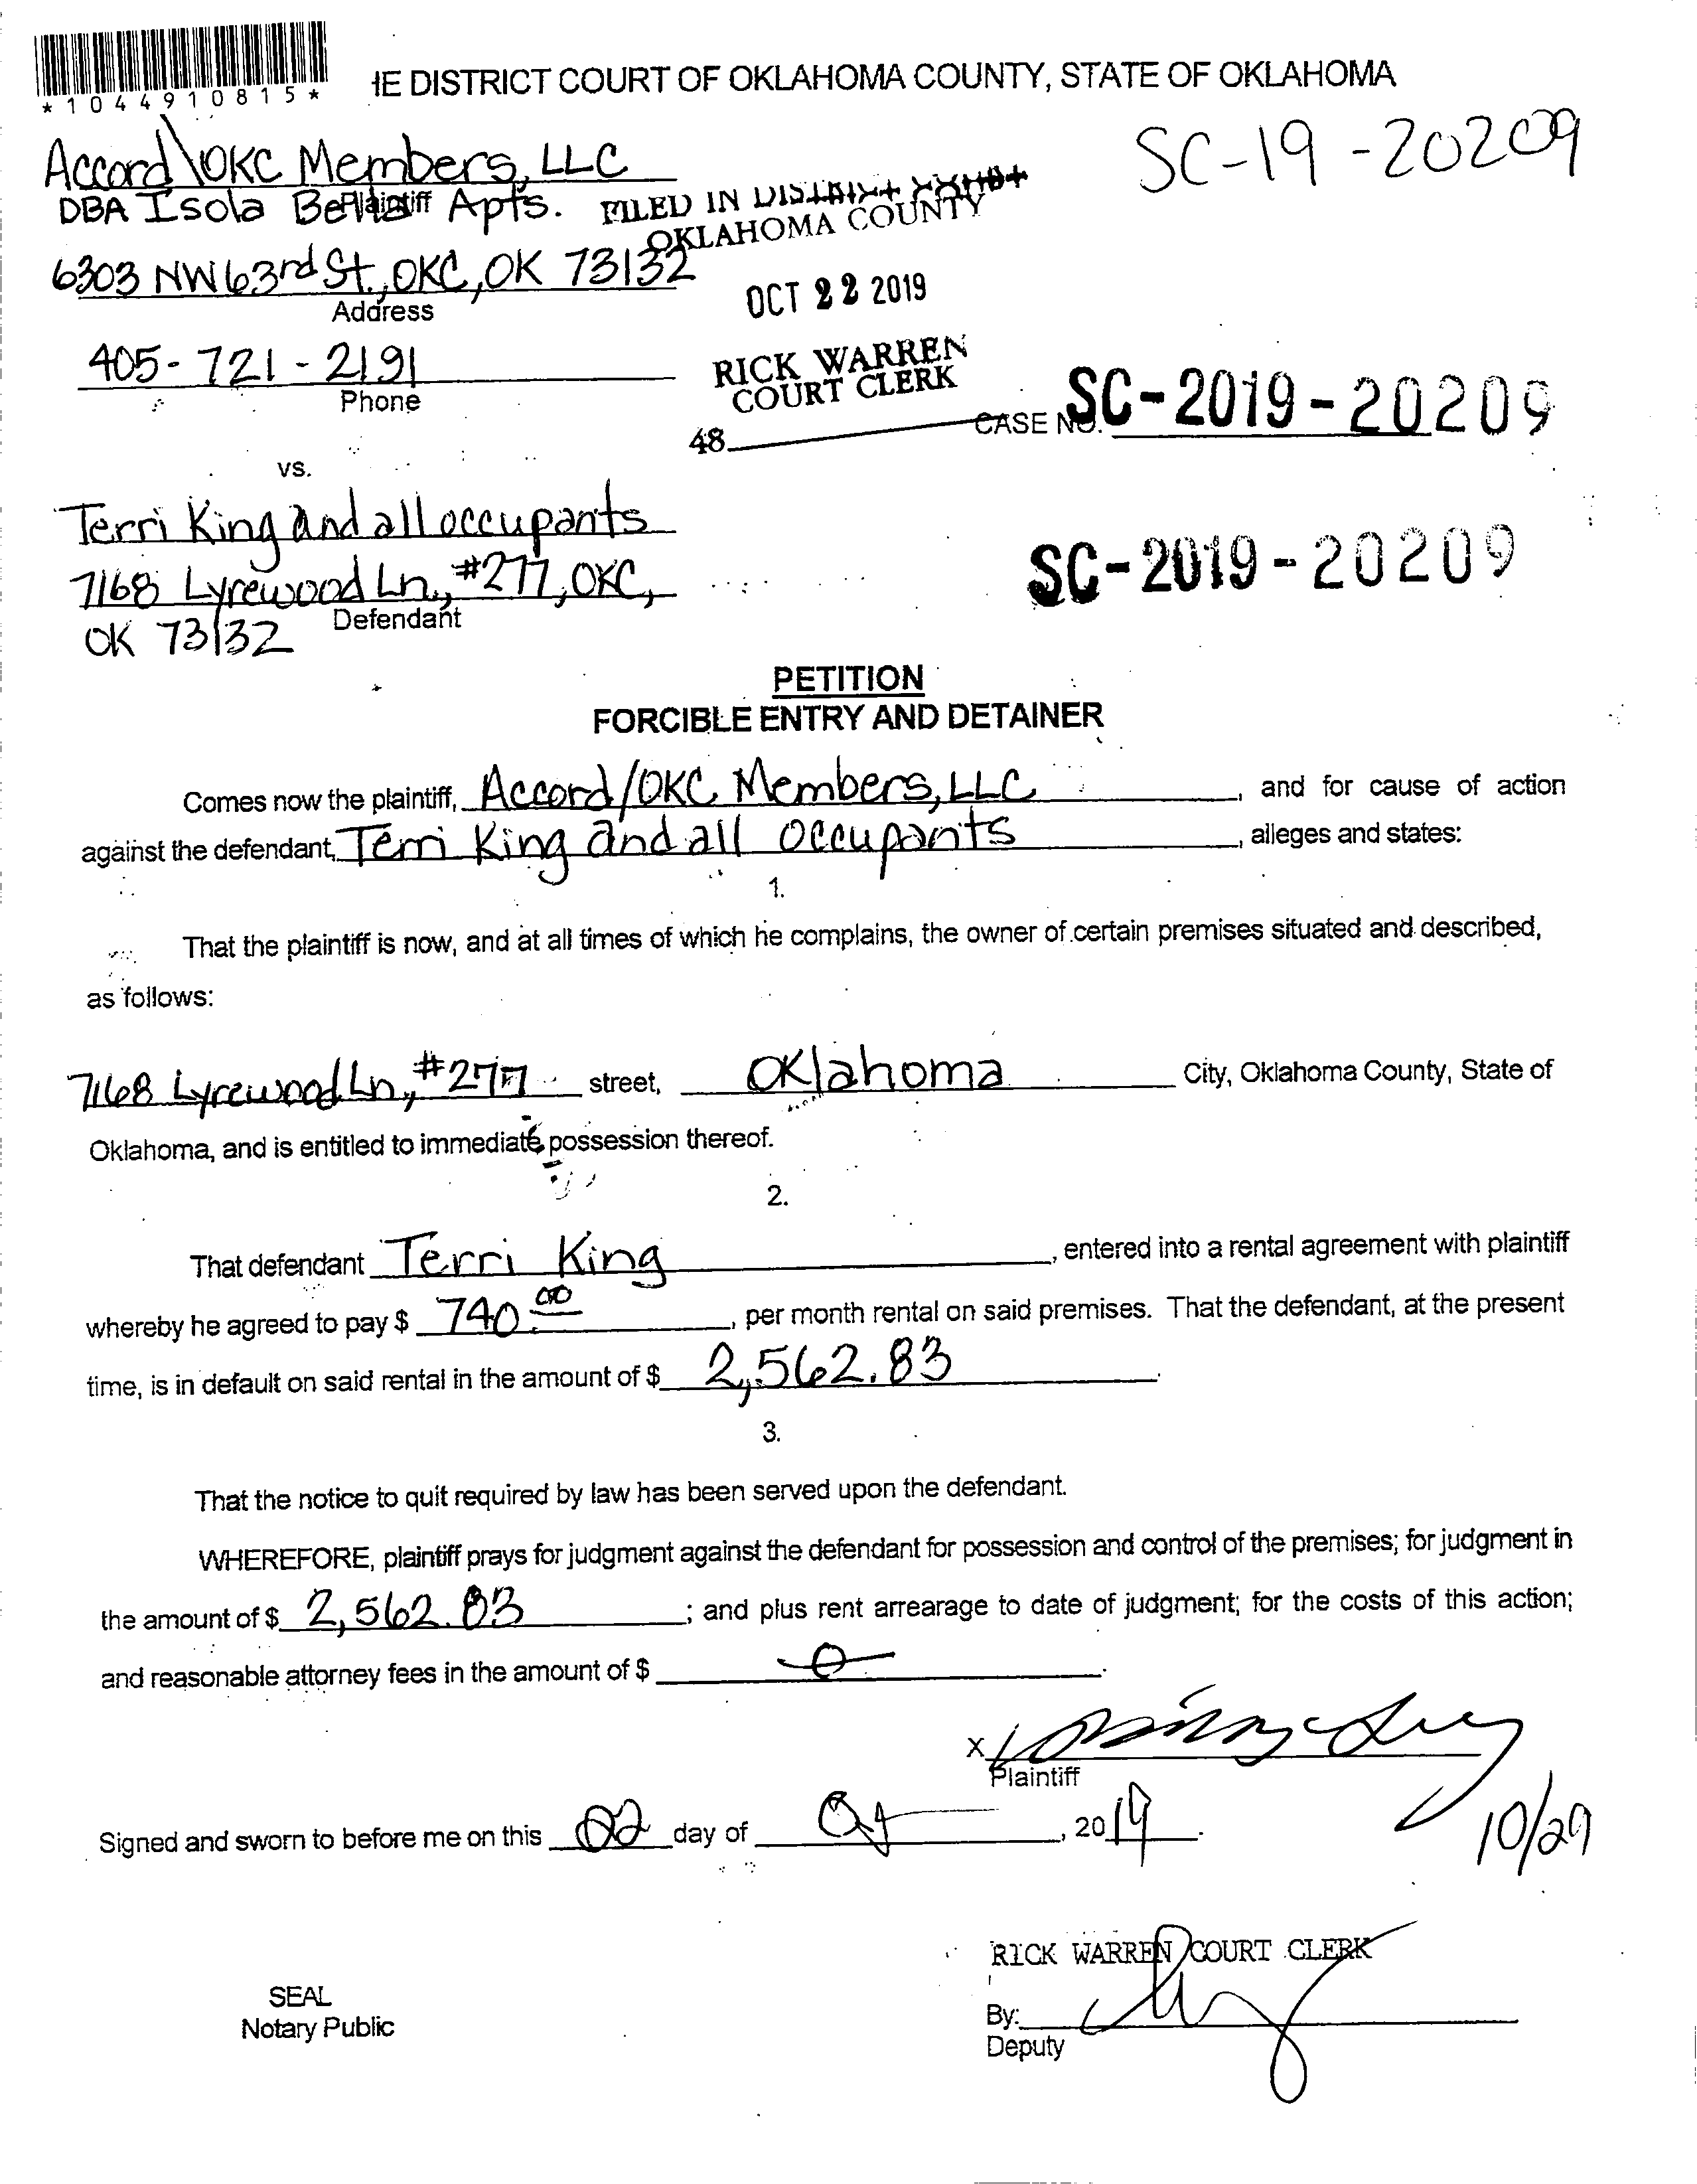 *1044910815*
IE DISTRICT COURT OF OKLAHOMA COUNTY, STATE OF OKLAHOMA
SC-19-20209
Accord\OKC Members, LLC
DBA Isola Bella Apts.
Plaintiff
FILED IN DISTRICT COURT
OKLAHOMA COUNTY
6303 NW 63rd St., OKC, OK 73132
Address
OCT 22 2019
405-721-2191
Phone
RICK WARREN
COURT CLERK
48
CASE NO. SC-2019-20209
vs.
Terri King and all occupants
7168 Lyrewood Ln., #277, OKC,
Defendant
OK 73132
SC-2019-20209
PETITION
FORCIBLE ENTRY AND DETAINER
Comes now the plaintiff, Accord/OKC Members, LLC, and for cause of action
against the defendant, Terri King and all occupants, alleges and states:
1.
That the plaintiff is now, and at all times of which he complains, the owner of certain premises situated and described,
as follows:
7168 Lyrewood Ln., #277 street, Oklahoma City, Oklahoma County, State of
Oklahoma, and is entitled to immediate possession thereof.
2.
That defendant Terri King, entered into a rental agreement with plaintiff
whereby he agreed to pay $ 740.00, per month rental on said premises. That the defendant, at the present
time, is in default on said rental in the amount of $ 2,562.83.
3.
That the notice to quit required by law has been served upon the defendant.
WHEREFORE, plaintiff prays for judgment against the defendant for possession and control of the premises; for judgment in
the amount of $ 2,562.83; and plus rent arrearage to date of judgment; for the costs of this action;
and reasonable attorney fees in the amount of $ 0.
X
Plaintiff
Signed and sworn to before me on this 22 day of , 2019.
10/29
RICK WARREN COURT CLERK
SEAL
Notary Public
By:
Deputy